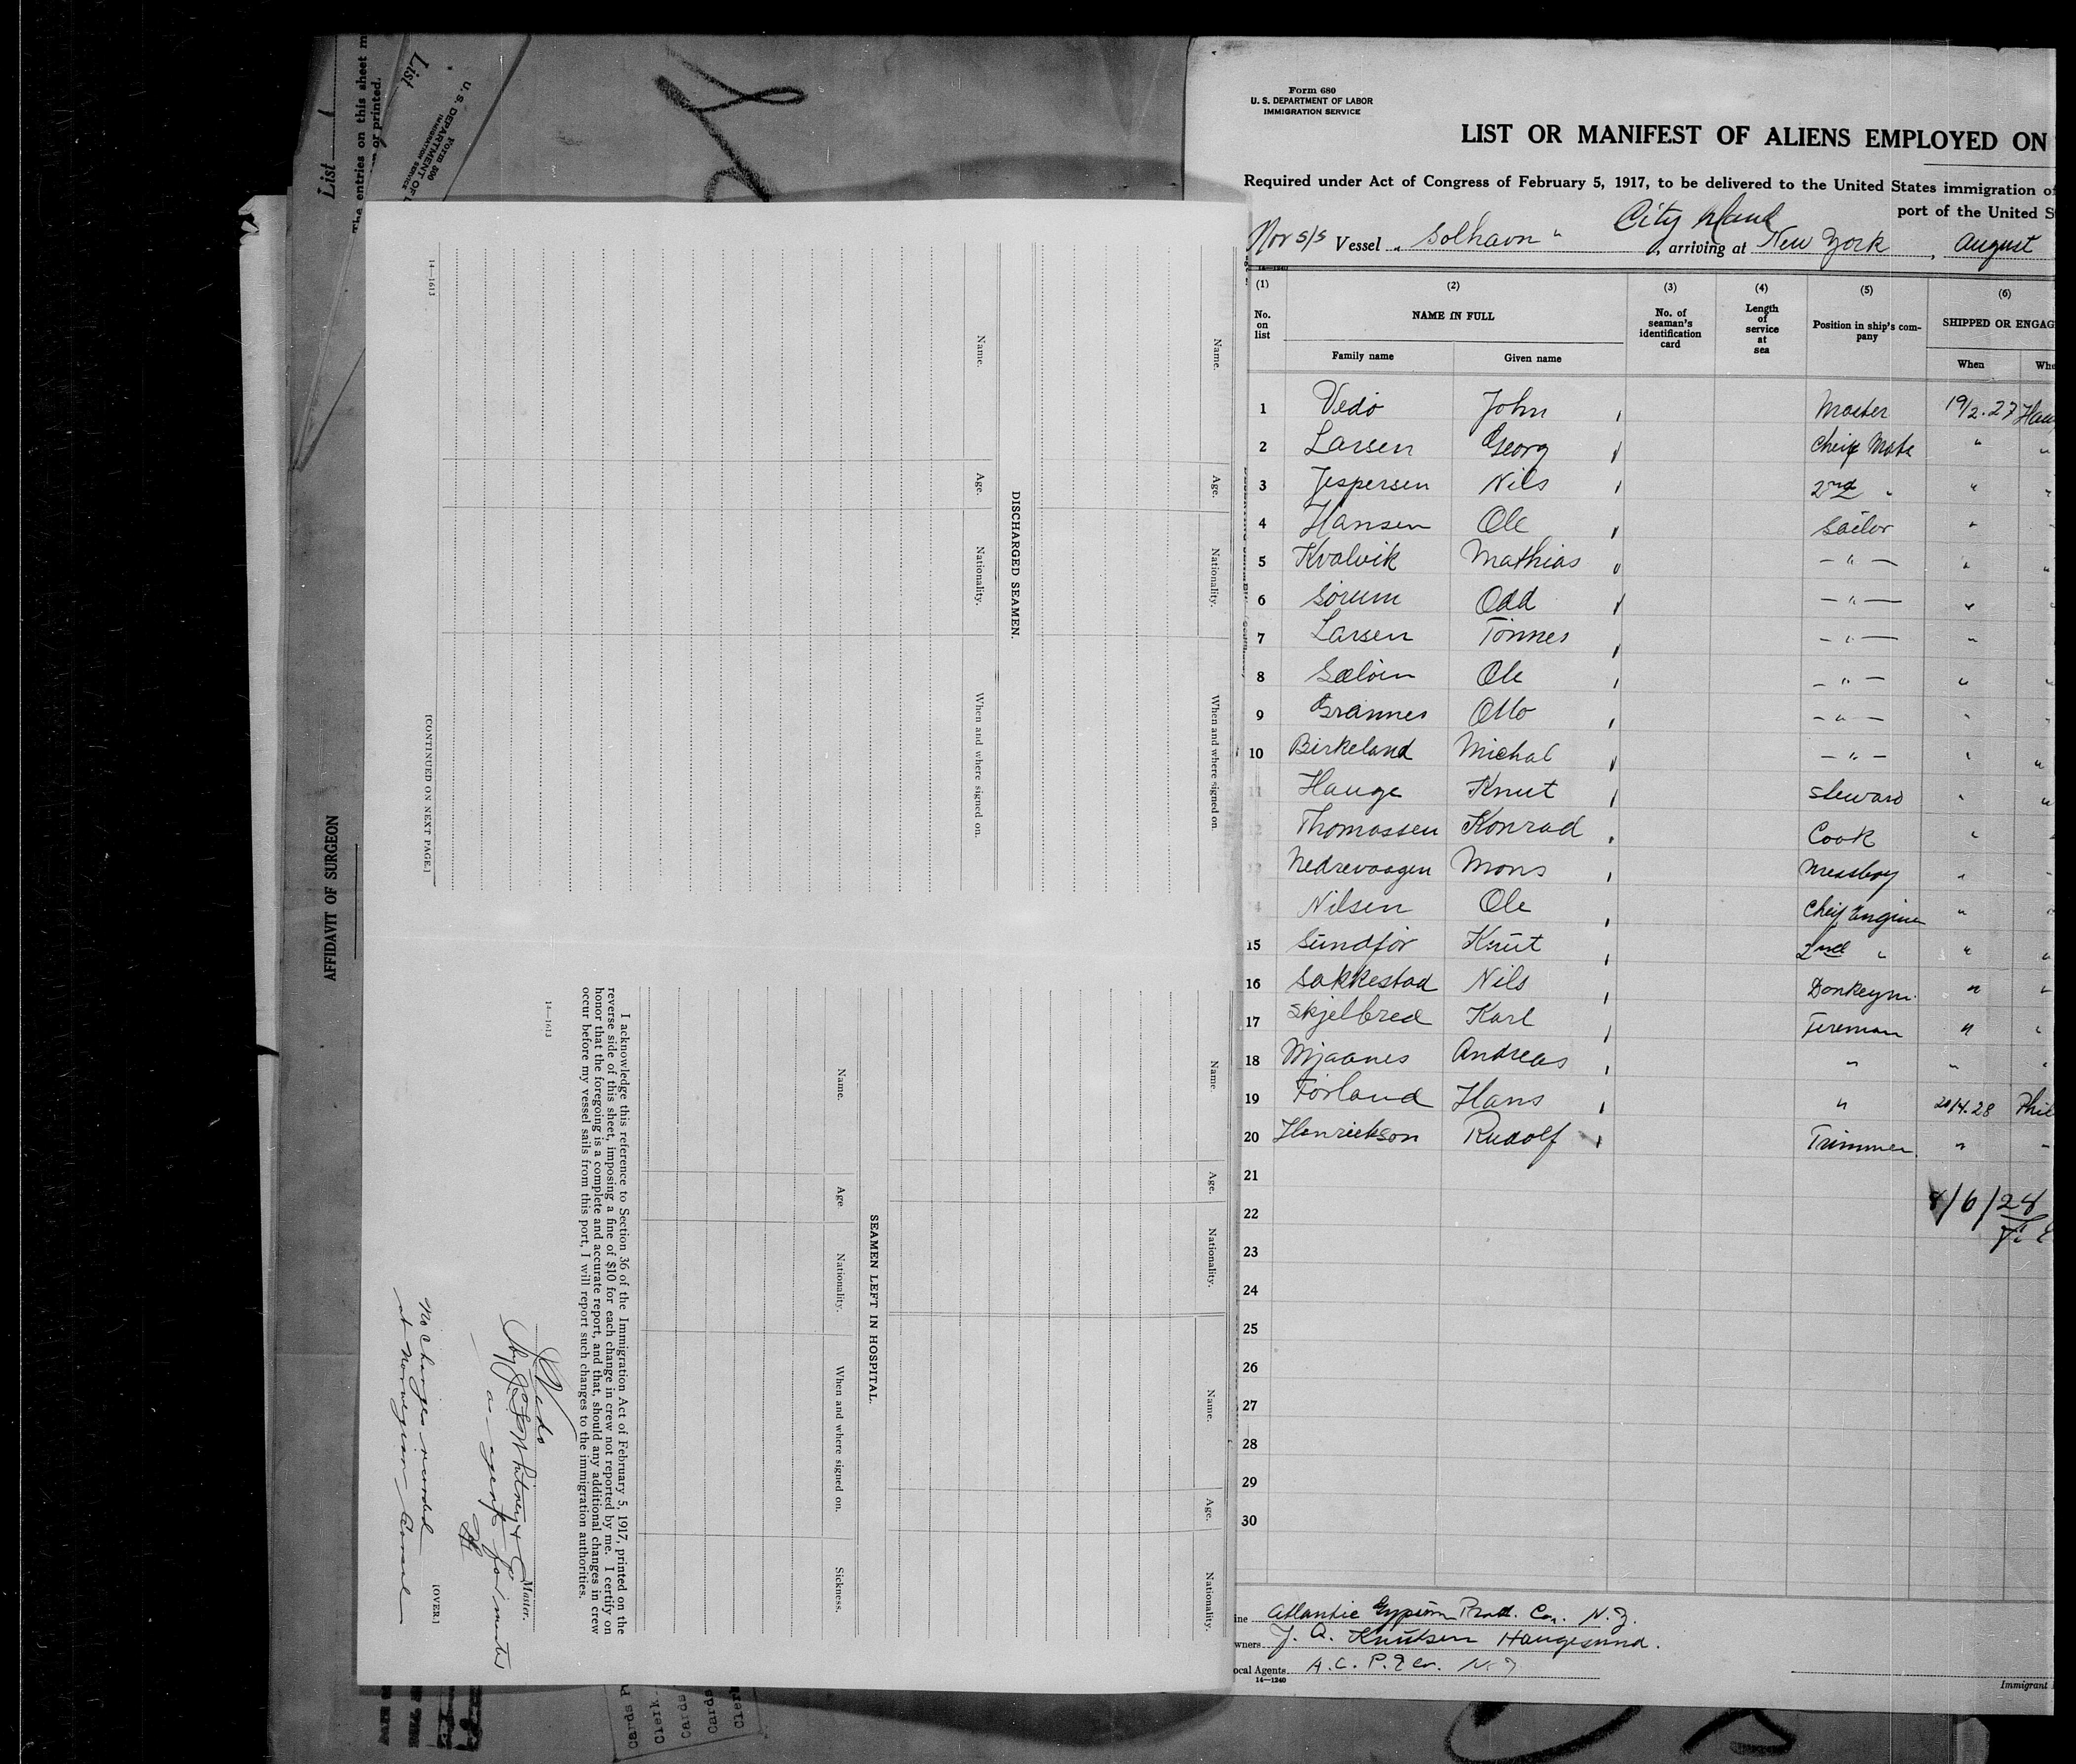 List
The entries on this sheet m
or printed.
List
Form 500
U. S. DEPARTMENT OF
IMMIGRATION SERVICE
AFFIDAVIT OF SURGEON
Name. Age. Nationality. When and where signed on.
DISCHARGED SEAMEN.
Name. Age. Nationality. When and where signed on.
14—1613
[CONTINUED ON NEXT PAGE.]
Name. Age. Nationality. Name. Age. Nationality.
SEAMEN LEFT IN HOSPITAL.
Name. Age. Nationality. When and where signed on. Sickness.
I acknowledge this reference to Section 36 of the Immigration Act of February 5, 1917, printed on the
reverse side of this sheet, imposing a fine of $10 for each change in crew not reported by me. I certify on
honor that the foregoing is a complete and accurate report, and that, should any additional changes in crew
occur before my vessel sails from this port, I will report such changes to the immigration authorities.
14—1613
J Vedo
Master.
by J S Whitney & Co
as agents for master
[OVER.]
No changes recorded
at Norwegian Consul
Cards
Clerk
Cards
Cards
Clerk
Form 680
U. S. DEPARTMENT OF LABOR
IMMIGRATION SERVICE
LIST OR MANIFEST OF ALIENS EMPLOYED ON
Required under Act of Congress of February 5, 1917, to be delivered to the United States immigration of
port of the United S
City Island
Nor s/s Vessel "Solhavn", arriving at New York, August
14—1240
(1) (2) (3) (4) (5) (6)
No. on list NAME IN FULL No. of seaman's identification card Length of service at sea Position in ship's company SHIPPED OR ENGAG
Family name Given name When Whe
1 Vedo John Master 19/2.27 Hau
2 Larsen Georg Cheif Mate " "
3 Jespersen Nils 2nd " " "
4 Hansen Ole Sailor " "
5 Kvalvik Mathias — " — " "
6 Sörum Odd — " — " "
7 Larsen Tönnes — " — "
8 Sæloin Ole — " — " "
9 Grannes Otto — " — " "
10 Birkeland Michal — " — " "
11 Hauge Knut Steward " "
12 Thomassen Konrad Cook " "
13 Nedrevaagen Mons Messboy " "
14 Nilsen Ole Cheif Engine " "
15 Sundför Knut 2nd " " "
16 Sakkestad Nils Donkeym. " "
17 Skjelbred Karl Fireman " "
18 Mjaanes Andreas " " "
19 Förland Hans " 20/4.28 Phil
20 Henrickson Rudolf Trimmer " "
21
22 8/6/28
23
24
25
26
27
28
29
30
ine Atlantic Gypsum Prod. Co. N.Y.
wners J. A. Knutsen Haugesund.
ocal Agents A. C. P. & Co. N.Y
14—1240
Immigrant